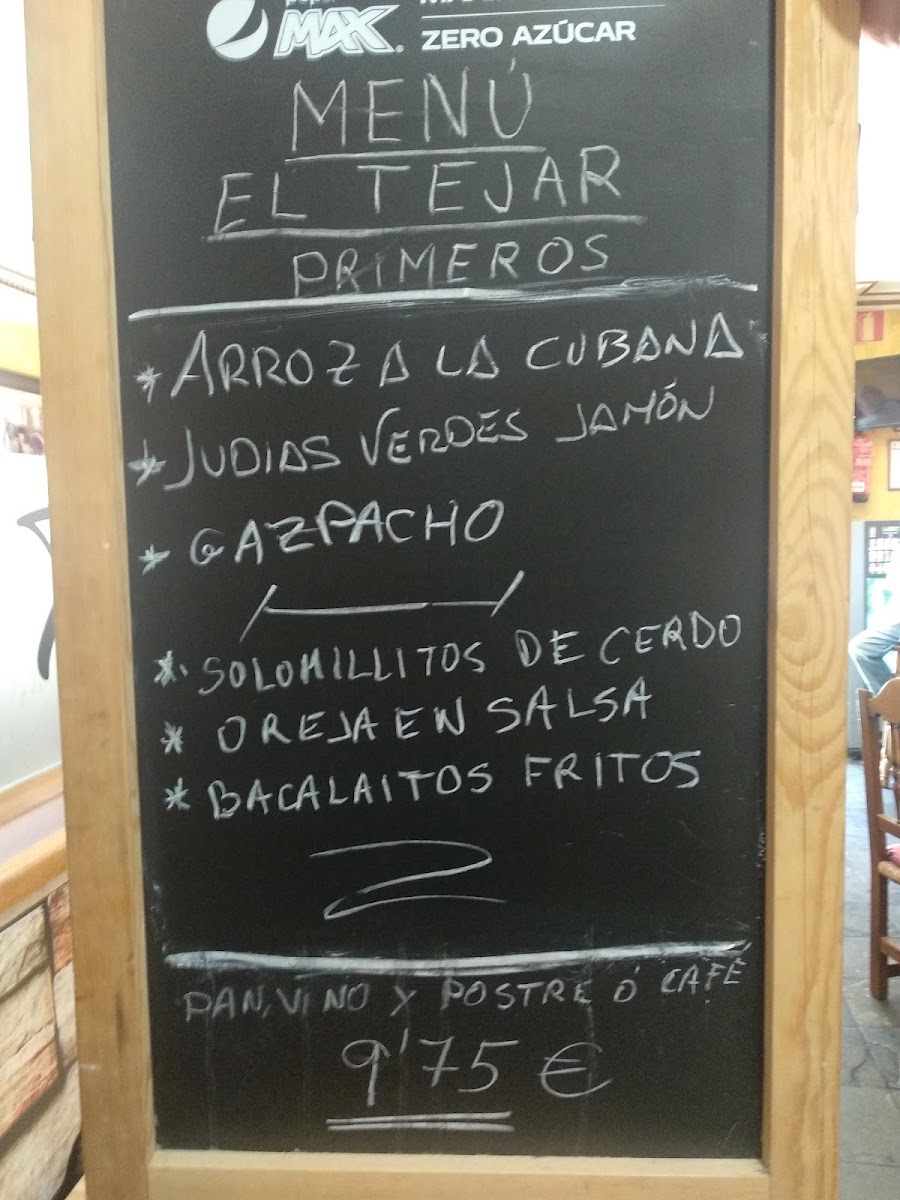 MAX
ZERO AZÚCAR
MENÚ
EL TEJAR
PRIMEROS
* ARROZ A LA CUBANA
* JUDIAS VERDES JAMÓN
* GAZPACHO
* SOLOMILLITOS DE CERDO
* OREJA EN SALSA
* BACALAITOS FRITOS
PAN, VINO Y POSTRE Ó CAFÉ
9'75 €